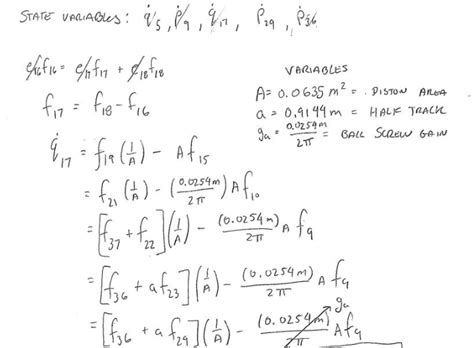 STATE VARIABLES: q̇5, ṗ9, q̇17, ṗ29, ṗ36
e16f16 = e17f17 + e18f18
f17 = f18 - f16
VARIABLES
A = 0.0635 m² = PISTON AREA
a = 0.9144 m = HALF TRACK
ga = 0.0254m/2π = BALL SCREW GAIN
q̇17 = f19(1/A) - Af15
= f21(1/A) - (0.0254m/2π)Af10
= [f37 + f22](1/A) - (0.0254m)/2π A f9
= [f36 + af23](1/A) - (0.0254m)/2π A f9
= [f36 + af29](1/A) - (0.0254m)/2π Af9
ga